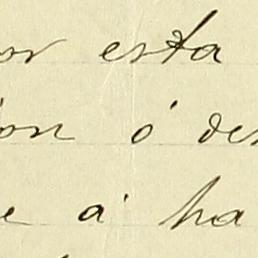 or esta
ion ó de
e á ha